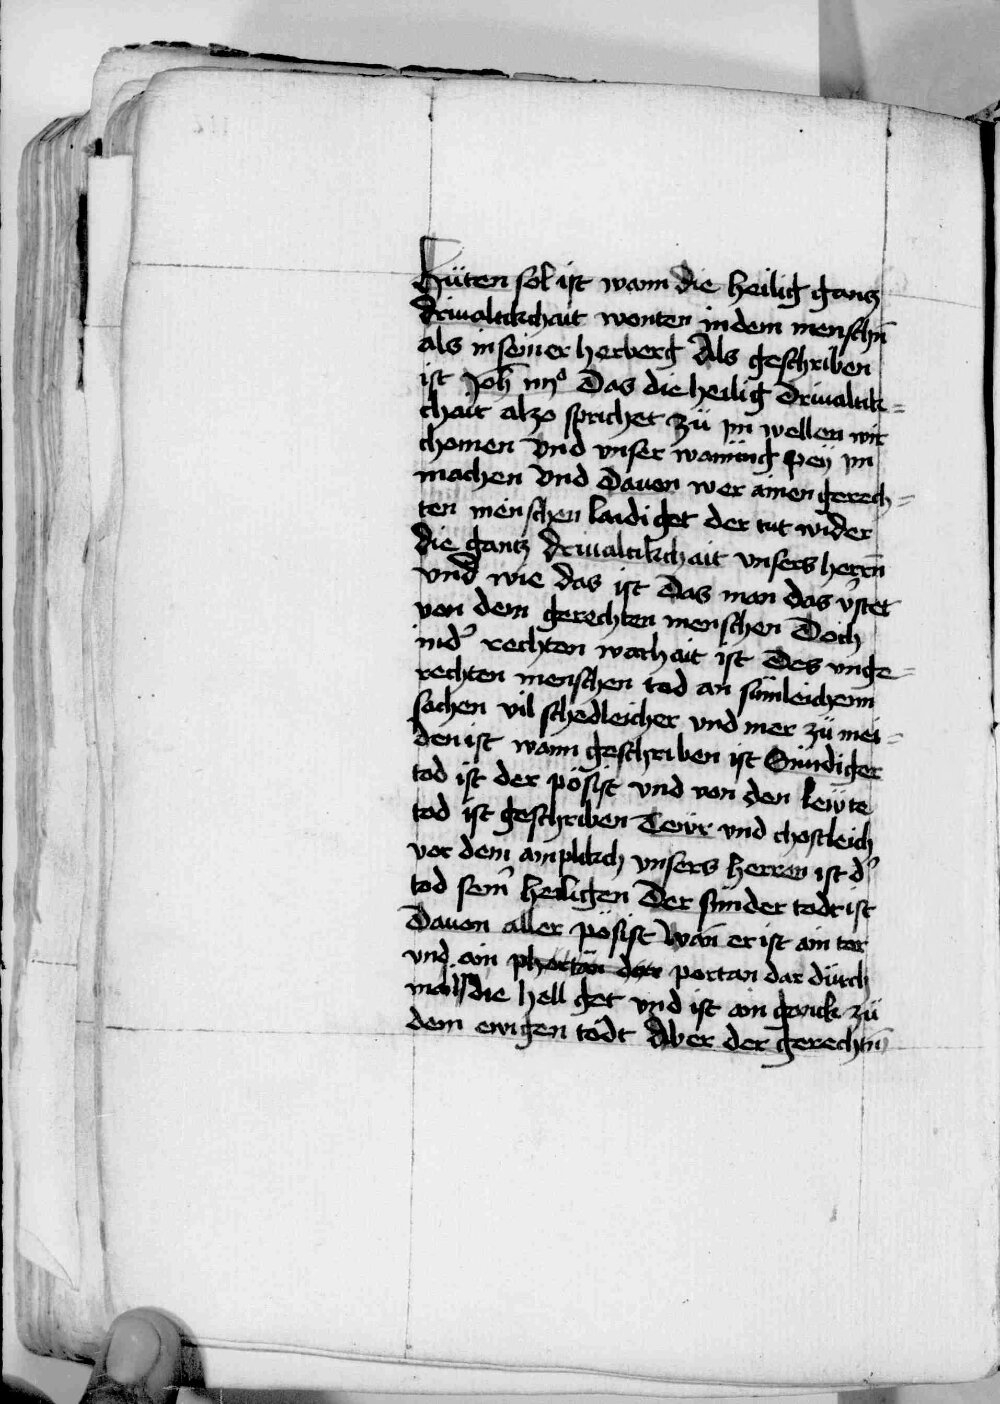 hüten sol ist wann die heilig gantz
driualtikchait wonten in dem menschn̄
als in seiner herberg Als geschriben
ist Joh̄ iiijo Das die heilig Driualtik=
chait alzo sprichet zü im wellen wir
chomen Vnd vnser wanüng peÿ im
machen Vnd Dauon wer ainen gerech=
ten menschen laidiget der tut wider
die gantz driualtikchait vnsers herrn̄
vnd wie das ist Das man das v̓stet
von dem gerechten menschen Doch
in d̓ rechten warhait ist Des vnge=
rechten menschen tod an sümleichenn
sachen vil schedleicher vnd mer zü mei=
den ist wann geschriben ist Sündiger
tod ist der pösist vnd von den lewte
tod ist geschriben Tewr vnd chostleich
vor dem amplikch vnsers herren ist d̓
tod sein̓ heiligen Der sünder todt ist
Dauon aller pösist Wan̄ er ist ain tor
vnd ain phortan dar portan dar dürch
man in die hell get vnd ist ain zü
dem ewigen tödt Aber der gerechtn̄